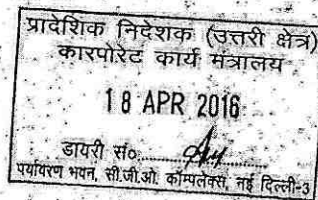 प्रादेशिक निदेशक (उत्तरी क्षेत्र)
कारपोरेट कार्य मंत्रालय
18 APR 2016
डायरी सं०
पर्यावरण भवन, सी.जी.ओ. कॉम्पलेक्स, नई दिल्ली-3